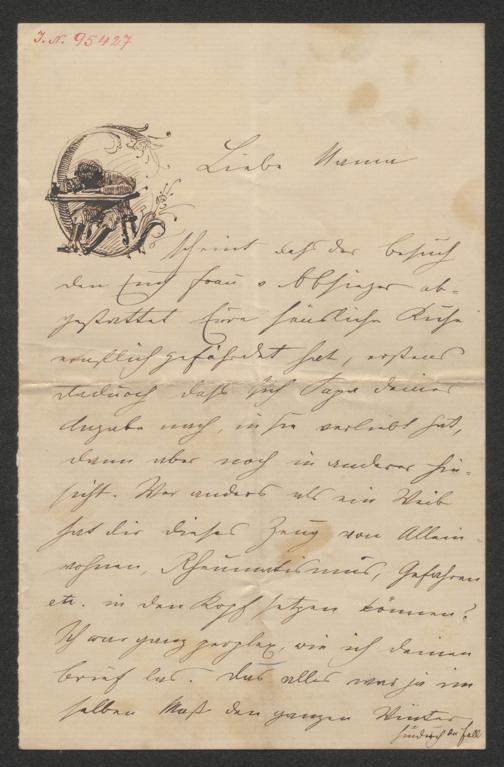 J. N. 95427
Liebe Mama
Es scheint daß der Besuch
den Euch Frau v Abhsinger ab-
gestattet Eure häusliche Ruhe
ernstlich gefährdet hat, erstens
dadurch daß sich Papa deiner
Angabe nach, in sie verliebt hat,
dann aber noch in anderer Hin-
sicht. Wer anders als ein Weib
hat dir dieses Zeug von Allein
wohnen, Rheumatismus, Gefahren
etc. in den Kopf setzen können?
Ich war ganz perplex, wie ich deinen
Brief las. Das alles war ja im
selben Maß den ganzen Winter
hindurch der Fall